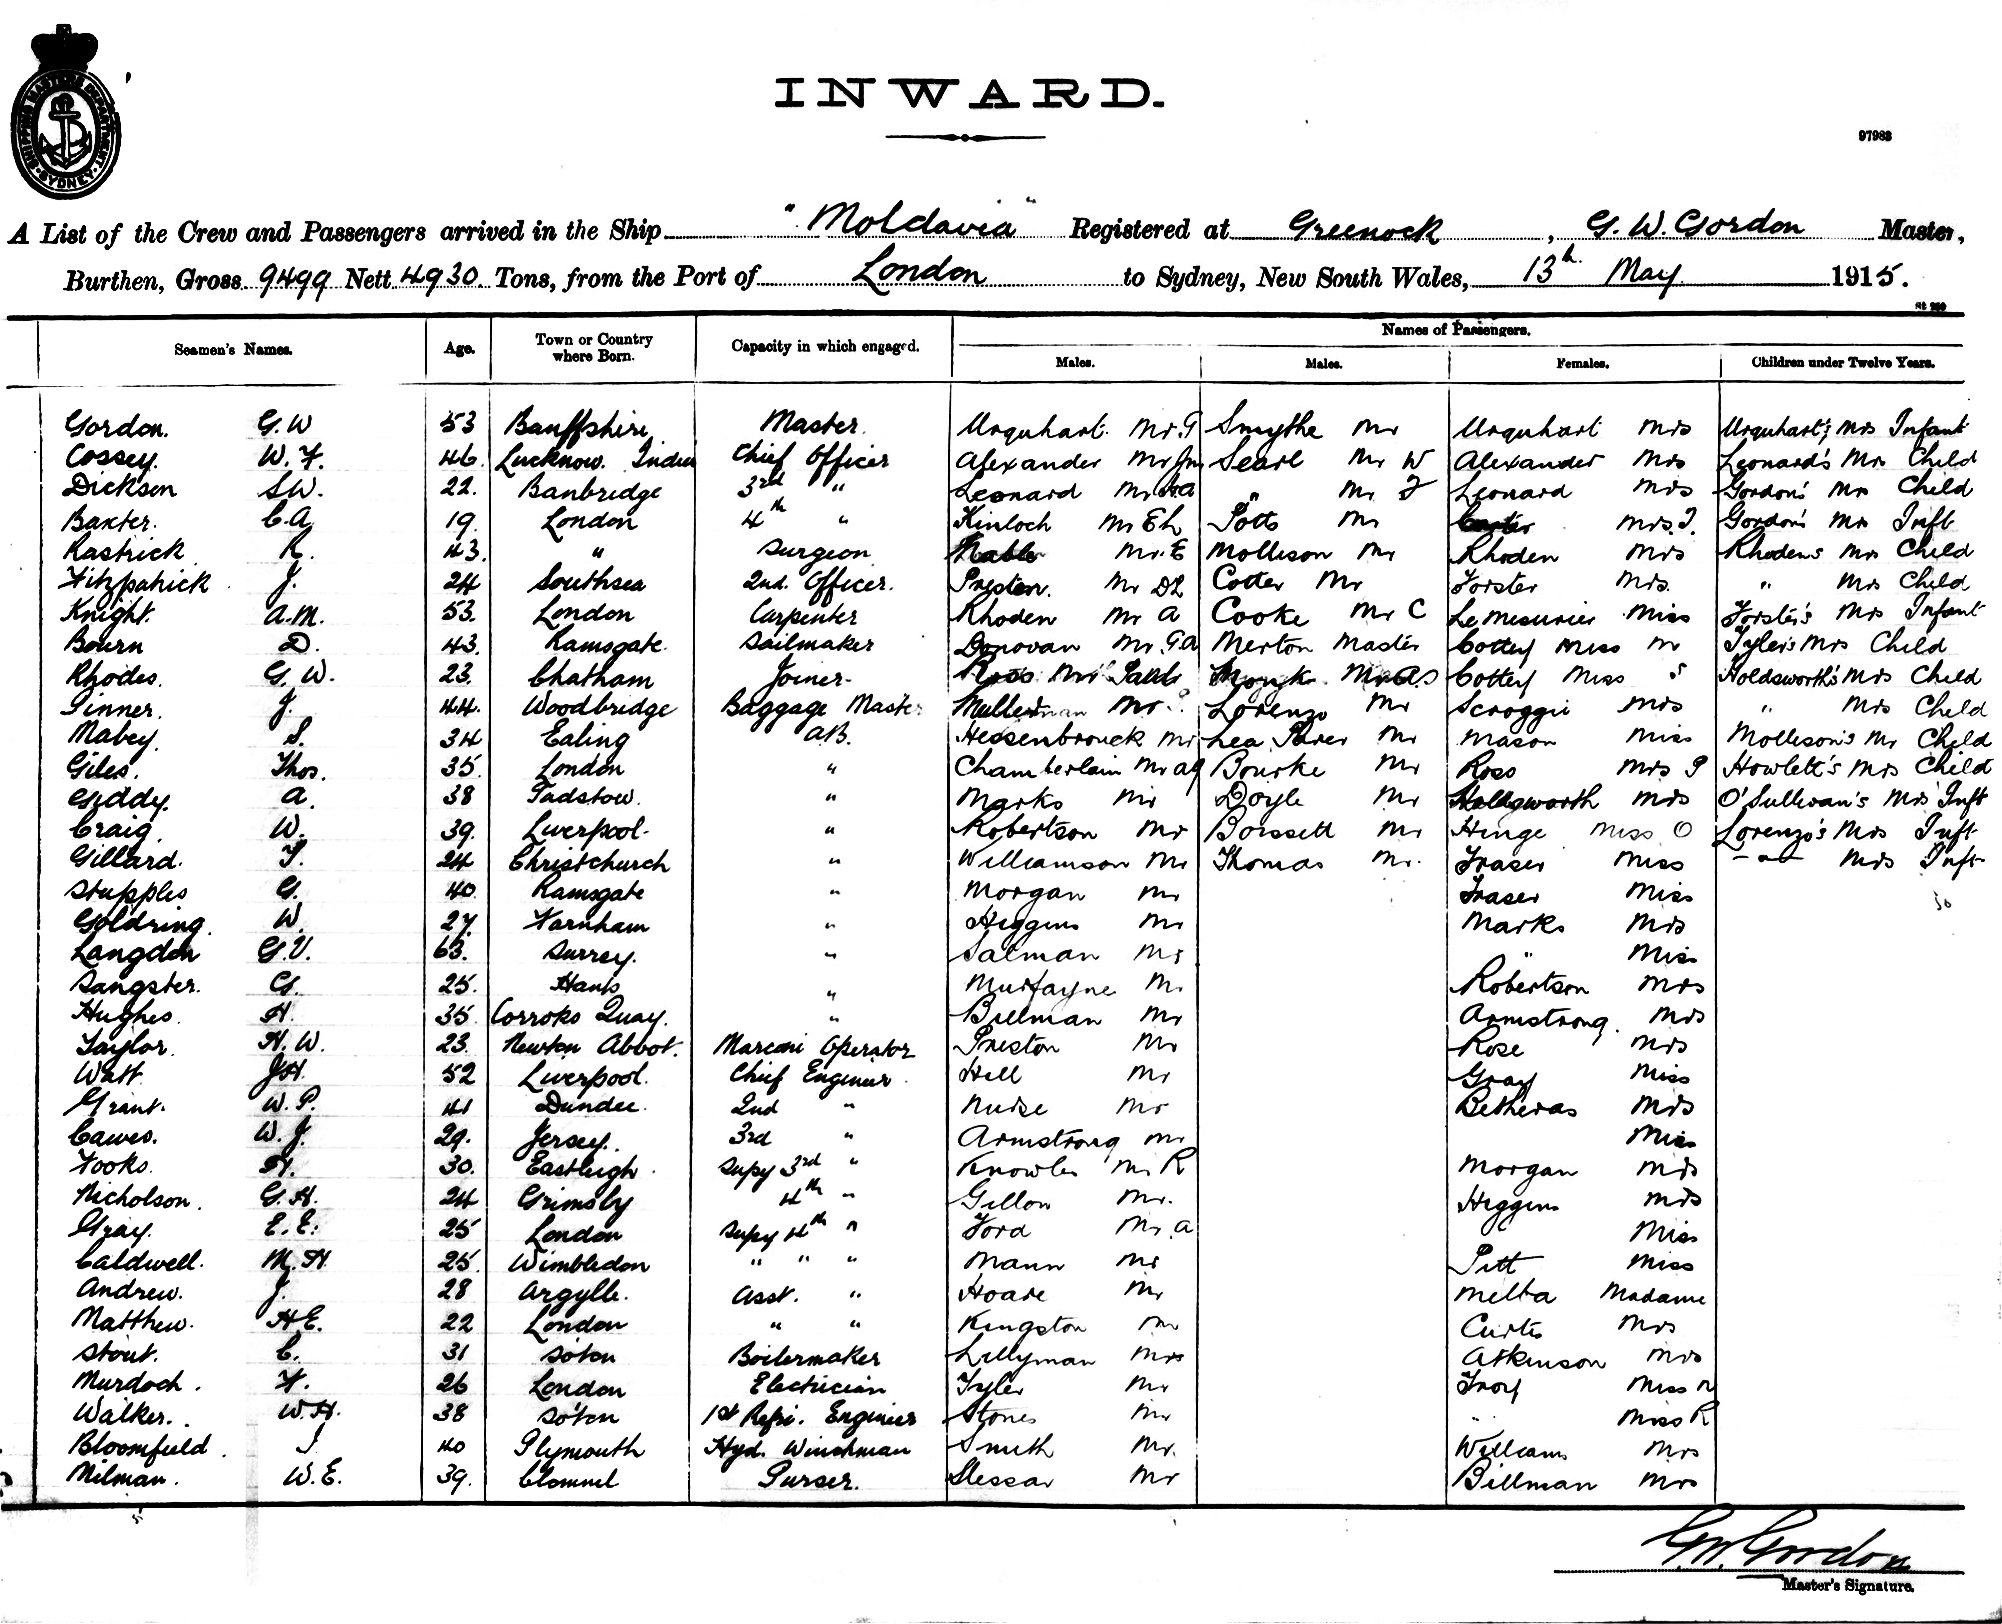 SHIPPING MASTERS DEPARTMENT. SYDNEY.
INWARD.
97983
A List of the Crew and Passengers arrived in the Ship "Moldavia" Registered at Greenock, G. W. Gordon Master,
Burthen, Gross 9499 Nett 4930 Tons, from the Port of London to Sydney, New South Wales, 13th May 1915.
Names of Passengers.
Seamen's Names. Age. Town or Country where Born. Capacity in which engaged. Males. Males. Females. Children under Twelve Years.
Gordon. G. W 53 Banffshire Master. Urquhart. Mr. G Smythe Mr Urquhart Mrs Urquhart's Mrs Infant
Cossey. W. F. 46. Lucknow. India Chief Officer Alexander Mr Searl Mr W Alexander Mrs Leonard's Mrs Child
Dickson S.W. 22. Banbridge 3rd " Leonard Mr " Mr F Leonard Mrs Gordon's Mrs Child
Baxter. C. A. 19. London 4th " Kinloch Mr Potts Mr Mrs. Gordon's Mrs Inft
Rastrick R. 43. " Surgeon Mr. E Mollison Mr Rhoden Mrs Rhoden's Mrs Child
Fitzpatrick J. 24 Southsea 2nd. Officer. Preston. Mr Cotter Mr Forster Mrs. " Mrs Child
Knight. A. M. 53. London Carpenter Rhoden Mr A Cooke Mr C Le Mesurier Miss Forster's Mrs Infant
Bourn D. 43. Ramsgate. Sailmaker Donovan Mr. G. A Merton Master Cottey Miss M Tyler's Mrs Child
Rhodes. G. W. 23. Chatham Joiner Ross Mr Cottey Miss S Holdsworth's Mrs Child
Pinner. J. 44. Woodbridge Baggage Master Mr Lorenzo Mr Scroggie Mrs " Mrs Child
Mabey. S. 34 Ealing A.B. Hessenbrouck Mr Mr Mason Miss Mollison's Mr Child
Giles. Thos. 35. London " Chamberlain Mr Bourke Mr Ross Mrs P Howlett's Mrs Child
Giddy. A. 38 Padstow. " Marks Mr Doyle Mr Mrs O'Sullivan's Mrs Inft
Craig W. 39. Liverpool " Robertson Mr Boissett Mr Hinge Miss O Lorenzo's Mrs Inft
Gillard. T. 24 Christchurch " Williamson Mr Thomas Mr. Fraser Miss Mrs Inft
Stupples G. 40. Ramsgate " Morgan Mr Fraser Miss
Goldring. W. 27. Farnham " Higgins Mr Marks Mrs
Langdon G. V. 63. Surrey. " Salman Mr " Miss
Sangster. G. 25. Hants " Murfayne Mr Robertson Mrs
Hughes. H. 35. Corroks Quay. " Billman Mr Armstrong. Mrs
Taylor. H. W. 23. Newton Abbot. Marconi Operator Preston Mr Rose Mrs
Watt J.H. 52 Liverpool. Chief Engineer Hill Mr Gray Miss
Grant. W. P. 41 Dundee. 2nd " Nurse Mr Betheras Mrs
Cawes. W. J. 29. Jersey. 3rd " Armstrong Mr Miss
Fooks. H. 30. Eastleigh Supy 3rd " Knowles Mr R Morgan Mrs
Nicholson. G. H. 24 Grimsby 4th " Gillon Mr. Higgins Mrs
Gray. E. E. 25 London Supy 4th " Ford Mr. A Miss
Caldwell. M. H. 25. Wimbledon " " " Mann Mr Pitt Miss
Andrew. J. 28 Argylle. Asst. " Hoare Mr Melba Madame
Matthew. H. E. 22 London " " Kingston Mr Curtis Mrs
Stout. C. 31 Soton Boilermaker Lillyman Mrs Atkinson Mrs
Murdoch. F. 26 London Electrician Tyler Mr Troy Miss
Walker. W. H. 38 Soton 1st Refri. Engineer Stones Mr " Miss R
Bloomfield. 40 Plymouth Hyd. Winchman Smith Mr. Williams Mrs
Milman. W. E. 39. Clonmel Purser. Slessar Mr Billman Mrs
G. W. Gordon
Master's Signature.